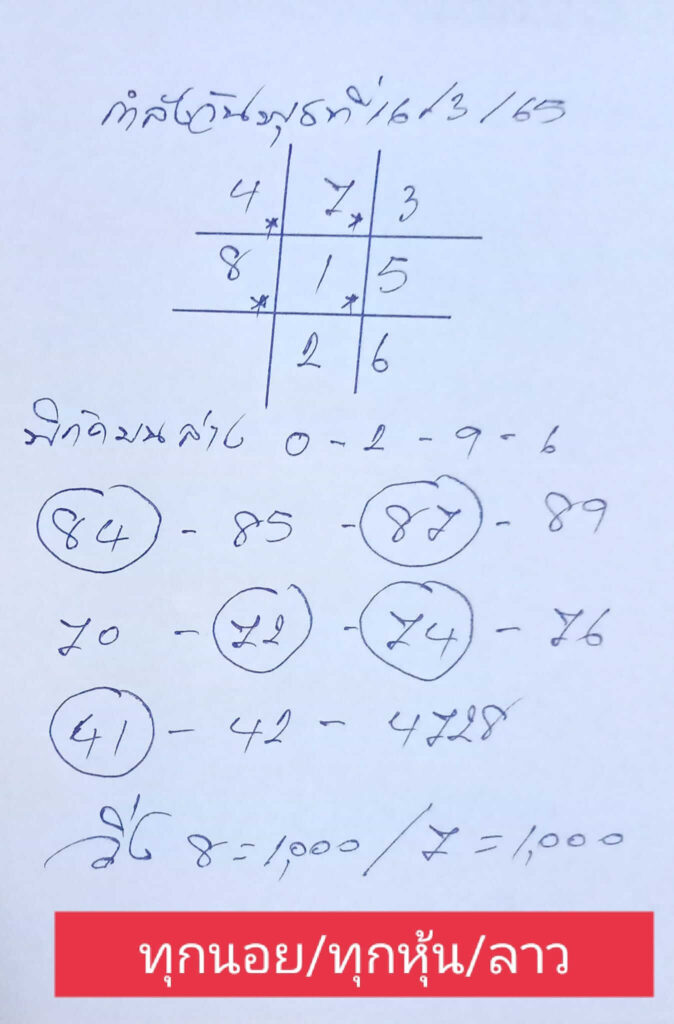 กำลังวันพุธที่ 16/3/65
4 7 3
8 1 5
2 6
พิกัดบนล่าง 0 - 2 - 9 - 6
84 - 85 - 87 - 89
70 - 72 - 74 - 76
41 - 42 - 4728
วิ่ง 8 = 1,000 / 7 = 1,000
ทุกนอย/ทุกหุ้น/ลาว